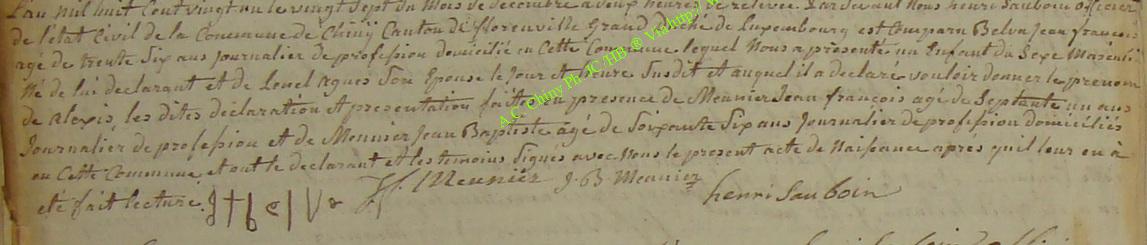 L'an mil huit Cent vingt un le vingt Sept du Mois de Decembre a deux heures de relevée. Par devant Nous henri Sauboin officier
de l'etat Civil de la Commune de Chiny Canton de florenville Grand duché de Luxembourg est Comparu Belva Jean françois
agé de trente Six ans Journalier de profession domicilié en Cette Commune lequel Nous a presenté un Enfant du Sexe Masculin
Né de lui declarant et de Agnes Son Epouse le Jour et heure Susdit et auquel il a declaré vouloir donner le prenom
de Alexis, les dites declaration et presentation faites en presence de Meunier Jean françois agé de Septante un ans
Journalier de profession et de Meunier Jean Baptiste agé de Soixante Six ans Journalier de profession domiciliés
en Cette Commune et ont le declarant et les temoins Signés avec Nous le present acte de Naissance apres qu'il leur en à
eté fait lecture. J f b e l V a J f Meunier J. B. Meunier henri Sauboin
A.C. Chiny Ph JC/HB @ Via http://